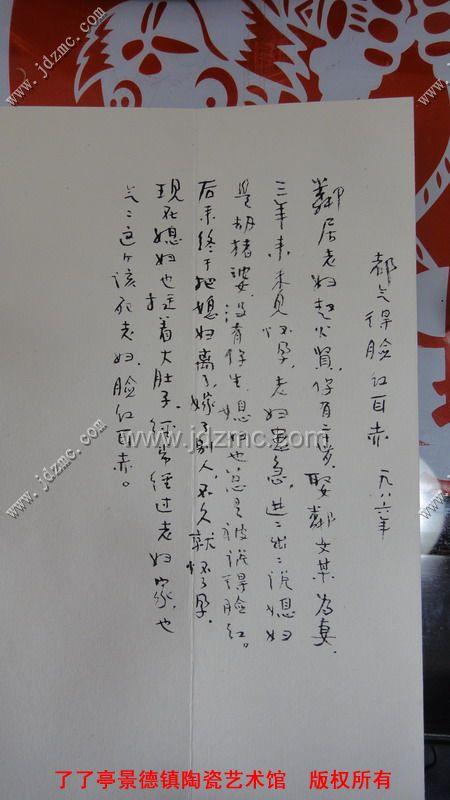 都气得脸红耳赤 一九八六年
邻居老妇赵火贤，仔有二十岁，娶邻女某为妻，
三年来未见怀孕，老妇患急，进二出二说媳妇
是胡猪婆，没有仔生，媳妇也总是被说得脸红。
后来终于把媳妇离了，嫁了别人，不久就怀了孕，
现在媳妇也挺着大肚子，经常经过老妇家，也
气二这个该死老妇，脸红耳赤。
www.jdzmc.com
了了亭景德镇陶瓷艺术馆 版权所有